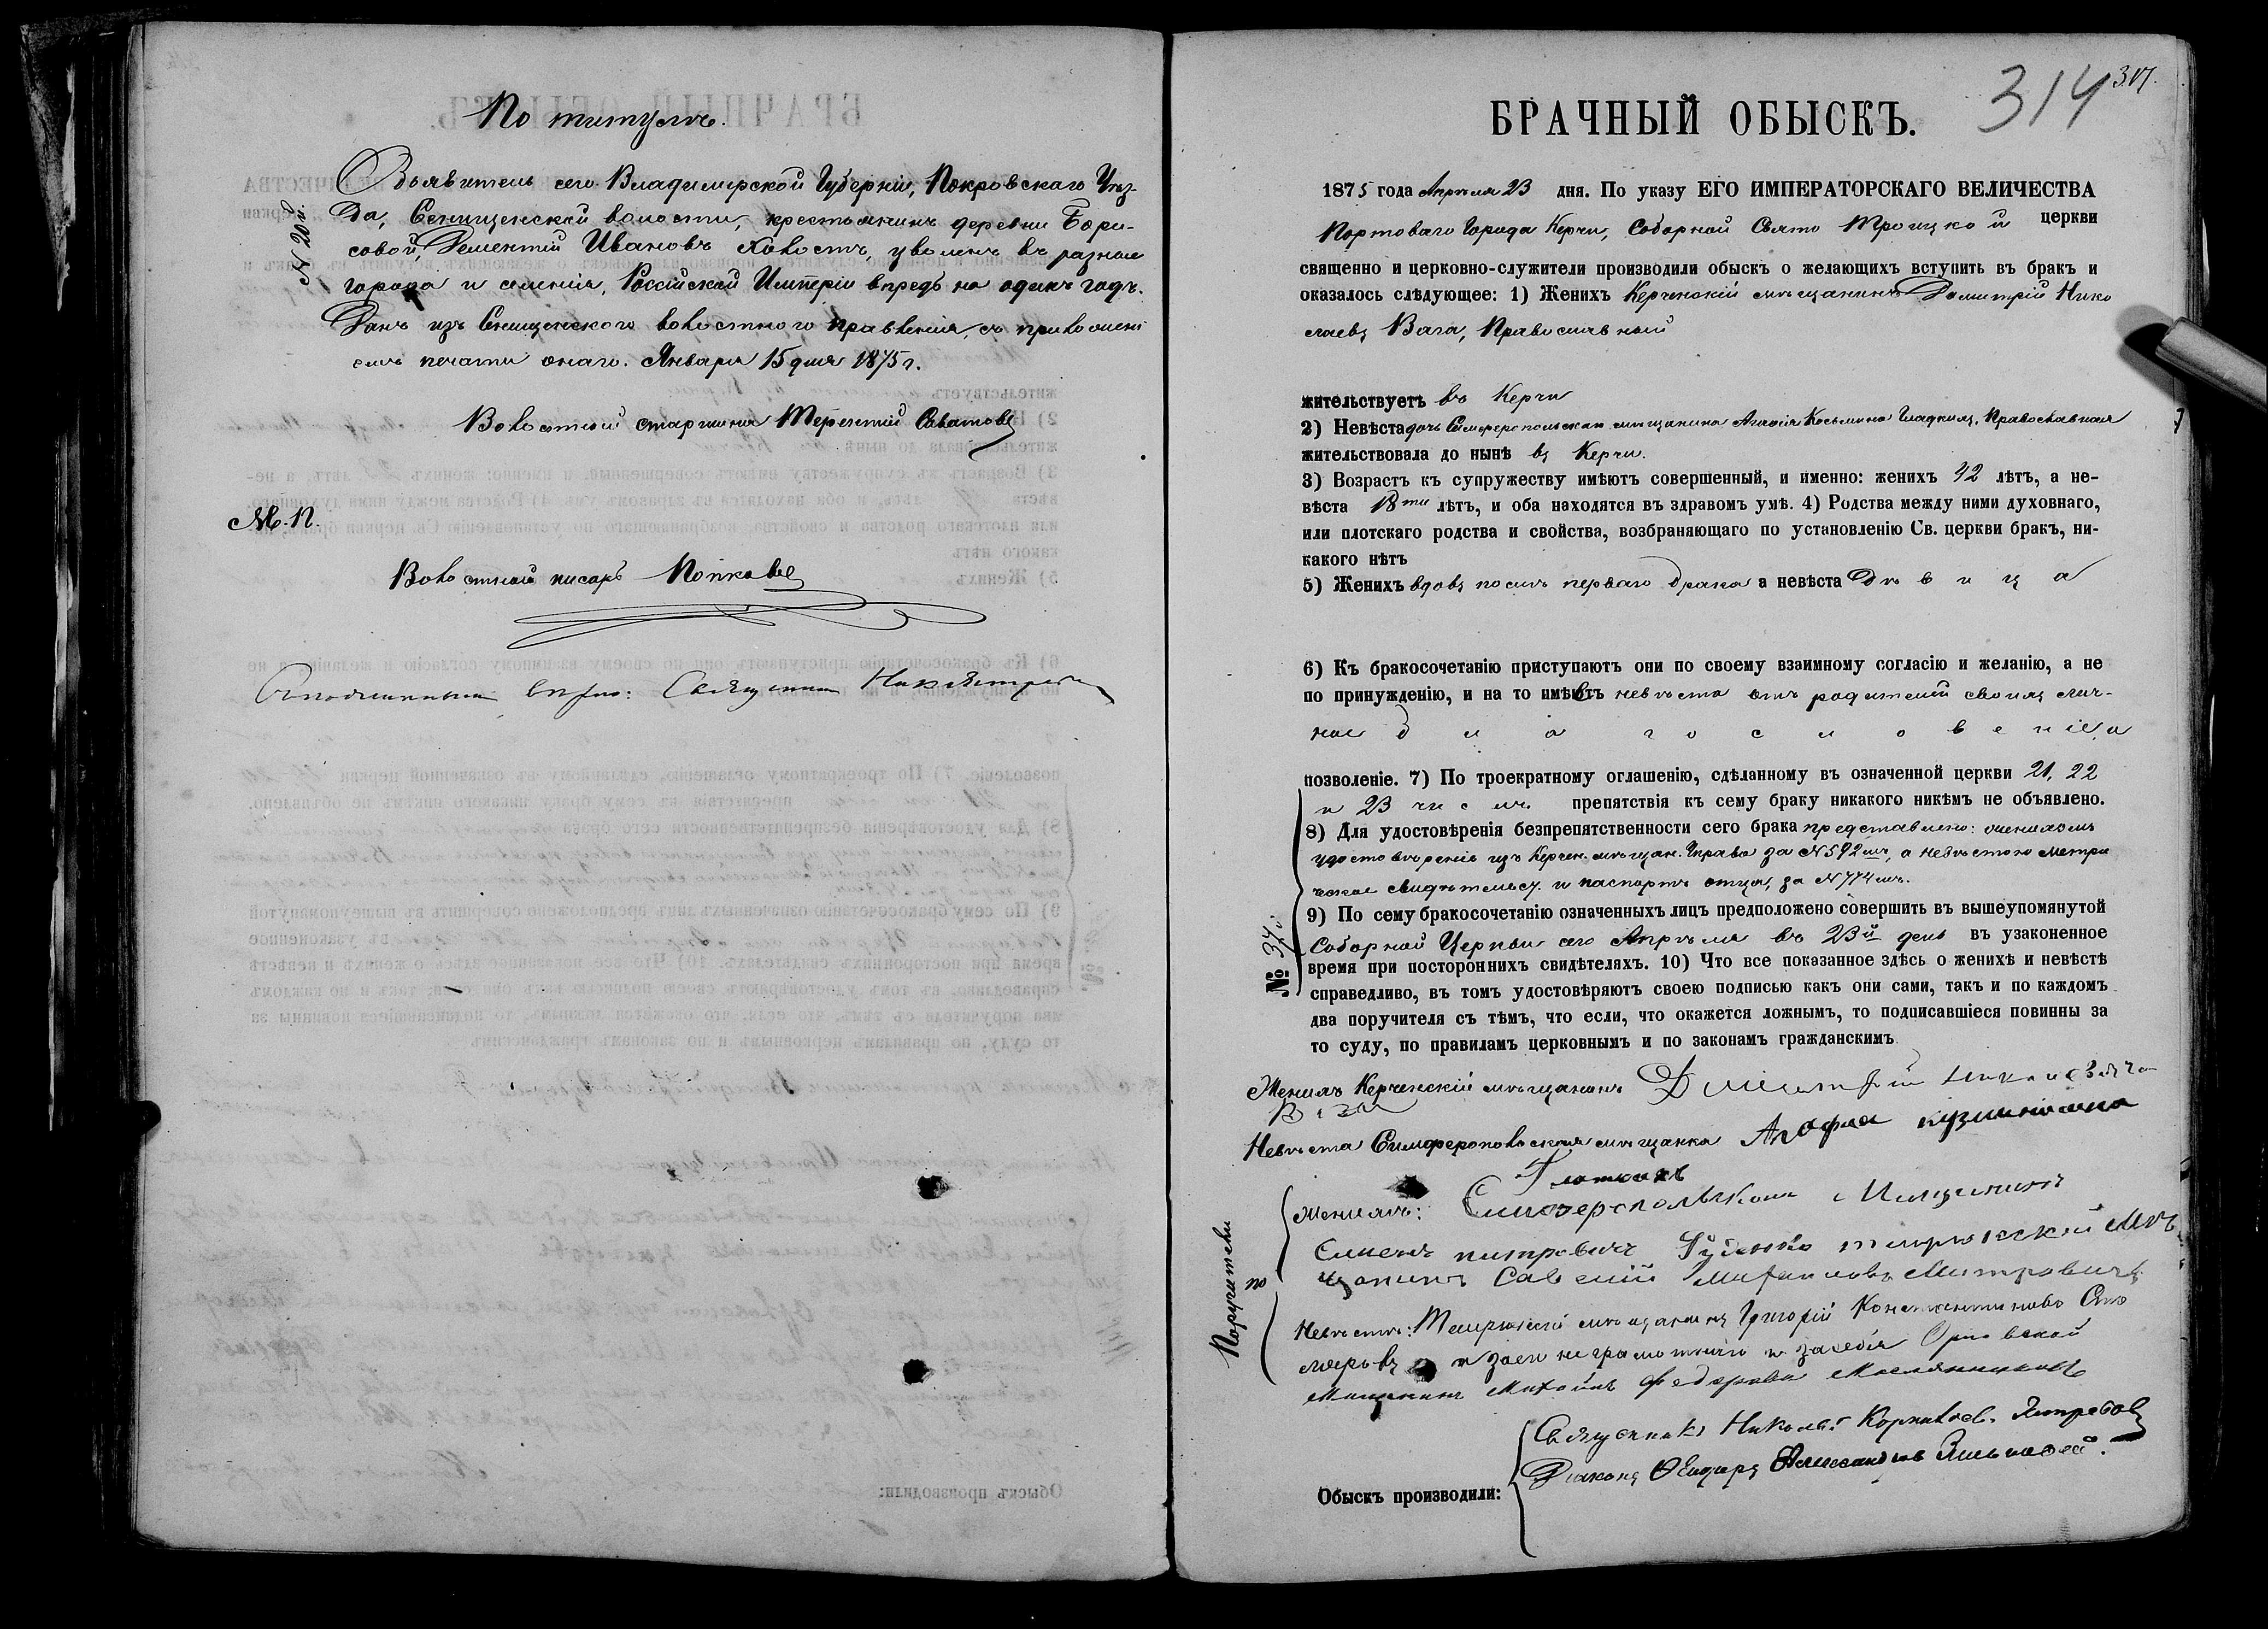 По титулѣ.
Объявитель сего Владимирской Губерніи, Покровскаго Уѣз-
да, Сенищенской волости, крестьянинъ деревни Бори-
совой, Дементій Ивановъ уволенъ въ разные
города и селенія, Россійской Имперіи впредь на одинъ годъ.
Данъ изъ Сенищенского волостного правленія, съ приложені
емъ печати онаго. Января 15 дня 1875 г.
№ 20й.
Волостной старшина Терентій Саватовъ
М. П.
Волостной писарь Попковъ
Съ подлиннымъ вѣрно: Священникъ Ник. Ястребовъ
314 317.
БРАЧНЫЙ ОБЫСКЪ.
1875 года Апрѣля 23 дня. По указу ЕГО ИМПЕРАТОРСКАГО ВЕЛИЧЕСТВА
Портоваго Города Керчи, Соборной Свято Троицкой церкви
священно и церковно-служители производили обыскъ о желающихъ вступить въ бракъ и
оказалось слѣдующее: 1) Женихъ Керченскій мѣщанинъ Димитрій Нико
лаевъ Вага, Православный
жительствуетъ въ Керчи
2) Невѣста дочь Симферопольскаго мѣщанина Агафія Косьмина Гладкихъ, Православная
жительствовала до нынѣ въ Керчи.
3) Возрастъ къ супружеству имѣютъ совершенный, и именно: женихъ 42 лѣтъ, а не-
вѣста 18ти лѣтъ, и оба находятся въ здравомъ умѣ. 4) Родства между ними духовнаго,
или плотскаго родства и свойства, возбраняющаго по установленію Св. церкви бракъ, ни-
какого нѣтъ
5) Женихъ вдовъ послѣ перваго брака а невѣста Дѣвица
6) Къ бракосочетанію приступаютъ они по своему взаимному согласію и желанію, а не
по принужденію, и на то имѣетъ невѣста отъ родителей своихъ лич-
ное благословеніе и
позволеніе. 7) По троекратному оглашенію, сдѣланному въ означенной церкви 21, 22
и 23 числъ препятствія къ сему браку никакого никѣмъ не объявлено.
8) Для удостовѣренія безпрепятственности сего брака представлено: женихомъ
удостовѣреніе изъ Керчен. мѣщан. Управы за № 592мъ, а невѣстою метри
ческое свидѣтельст. и паспортъ отца, за № 774мъ.
9) По сему бракосочетанію означенныхъ лицъ предположено совершить въ вышеупомянутой
Соборной Церкви сего Апрѣля въ 23й день въ узаконенное
время при постороннихъ свидѣтеляхъ. 10) Что все показанное здѣсь о женихѣ и невѣстѣ
справедливо, въ томъ удостовѣряютъ своею подписью какъ они сами, такъ и по каждомъ
два поручителя съ тѣмъ, что если, что окажется ложнымъ, то подписавшіеся повинны за
то суду, по правиламъ церковнымъ и по законамъ гражданскимъ
№ 37й.
Женихъ Керченскій мѣщанинъ Димитрій Николаевичъ
Вага
Невѣста Симферопольская мѣщанка Агофия кузминошна
Глаткихъ
Поручители по
Женихѣ: Симферопольской Мещининъ
Семенъ питровичъ темрюкской Мѣ
щанинъ Савелій Митровичъ
Невѣстѣ: Темрюкскій мѣщанинъ Григорій Константиновъ Сто
ляровъ а за его неграмотнаго и за себя Орловской
Мещининъ Михаилъ Федоровъ Масленниковъ
Обыскъ производили:
Священникъ Николай Корнильев. Ястребовъ
Діаконъ Ѳеодоръ Александровъ